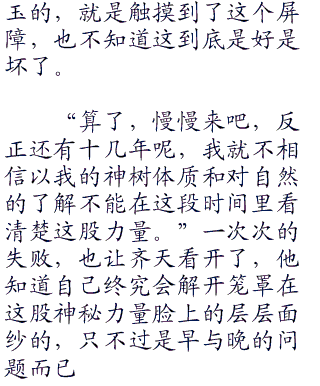 玉的，就是触摸到了这个屏
障，也不知道这到底是好是
坏了。
“算了，慢慢来吧，反
正还有十几年呢，我就不相
信以我的神树体质和对自然
的了解不能在这段时间里看
清楚这股力量。”一次次的
失败，也让齐天看开了，他
知道自己终究会解开笼罩在
这股神秘力量脸上的层层面
纱的，只不过是早与晚的问
题而已